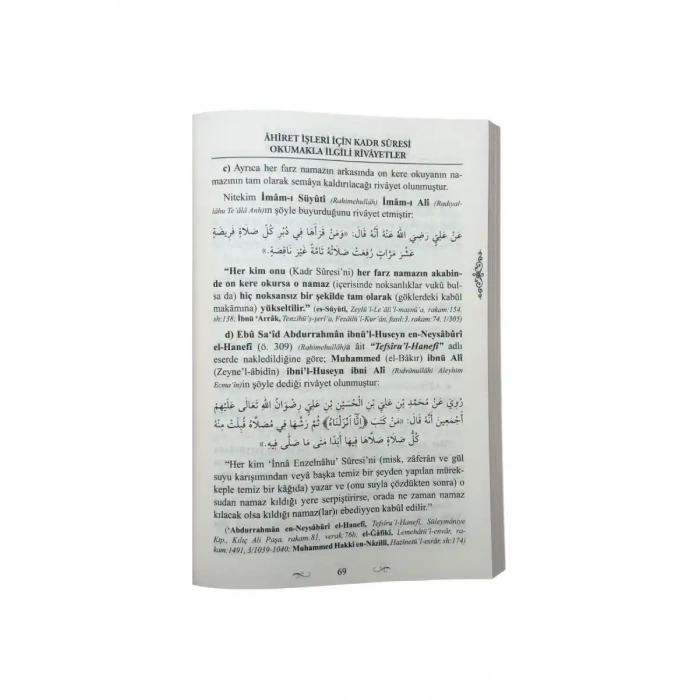 ÂHİRET İŞLERİ İÇİN KADR SÛRESİ
OKUMAKLA İLGİLİ RİVÂYETLER
c) Ayrıca her farz namazın arkasında on kere okuyanın na-
mazının tam olarak semâya kaldırılacağı rivayet olunmuştur.
Nitekim İmâm-ı Süyûtî (Rahimehullah) İmâm-ı Alî (Radıyal-
lâhu Te'âlâ Anh)ın şöyle buyurduğunu rivâyet etmiştir:
عَنْ عَلِيٍّ رَضِيَ اللهُ عَنْهُ أَنَّهُ قَالَ: «وَمَنْ قَرَأَهَا فِي دُبُرِ كُلِّ صَلَاةٍ فَرِيضَةٍ
عَشْرَ مَرَّاتٍ رُفِعَتْ صَلَاتُهُ تَامَّةً غَيْرَ نَاقِصَةٍ.»
“Her kim onu (Kadr Sûresi'ni) her farz namazın akabin-
de on kere okursa o namaz (içerisinde noksanlıklar vukû bul-
sa da) hiç noksansız bir şekilde tam olarak (göklerdeki kabûl
makâmına) yükseltilir.” (es-Süyûtî, Zeylü'l-Le'âli'l-masnû'a, rakam:154,
sh:138; İbnü 'Arrâk, Tenzîhü'ş-şerî'a, Fezâilü'l-Kur'ân, fasıl:3, rakam:74, 1/305)
d) Ebû Sa'îd Abdurrahmân ibnü'l-Huseyn en-Neysâbûrî
el-Hanefî (ö. 309) (Rahimehullâh)a âit “Tefsîru'l-Hanefî” adlı
eserde nakledildiğine göre; Muhammed (el-Bâkır) ibnü Alî
(Zeyne'l-âbidîn) ibni'l-Huseyn ibni Alî (Rıdvânullâhi Aleyhim
Ecma'în)in şöyle dediği rivâyet olunmuştur:
رُوِيَ عَنْ مُحَمَّدِ بْنِ عَلِيِّ بْنِ الْحُسَيْنِ بْنِ عَلِيٍّ رِضْوَانُ اللهِ تَعَالَى عَلَيْهِمْ
أَجْمَعِينَ أَنَّهُ قَالَ: «مَنْ كَتَبَ ﴿إِنَّا أَنْزَلْنَاهُ﴾ ثُمَّ رَشَّهَا فِي مُصَلَّاهُ قُبِلَتْ مِنْهُ
كُلُّ صَلَاةٍ صَلَّاهَا فِيهَا أَبَدًا مَتَى مَا صَلَّى فِيهِ.»
“Her kim 'İnnâ Enzelnâhu' Sûresi'ni (misk, zâferân ve gül
suyu karışımından veyâ başka temiz bir şeyden yapılan mürek-
keple temiz bir kâğıda) yazar ve (onu suyla çözdükten sonra) o
sudan namaz kıldığı yere serpiştirirse, orada ne zaman namaz
kılacak olsa kıldığı namaz(lar)ı ebediyyen kabûl edilir.”
('Abdurrahmân en-Neysâbûrî el-Hanefî, Tefsîru'l-Hanefî, Süleymâniye
Ktp., Kılıç Ali Paşa, rakam:81, verak:76b; el-Ğâfikî, Lemehâtü'l-envâr, ra-
kam:1491, 3/1039-1040; Muhammed Hakkî en-Nâzillî, Hazînetü'l-esrâr, sh:174)
69